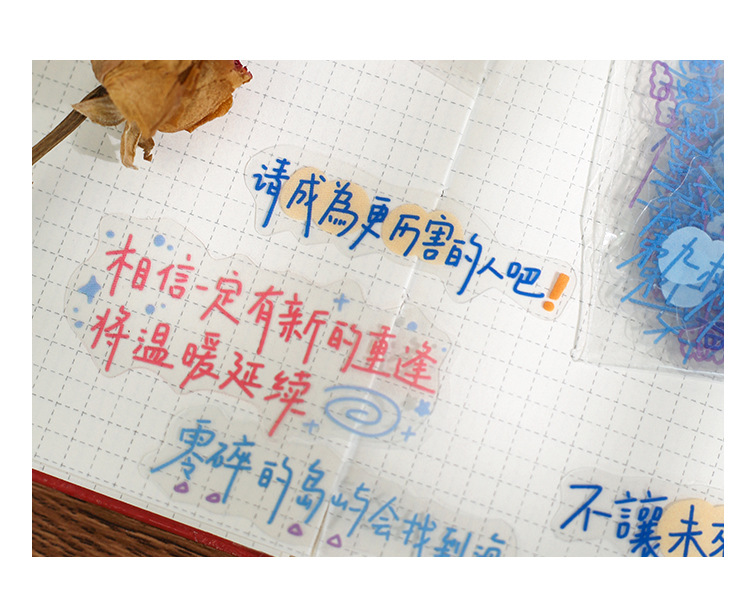 请成為更厉害的人吧!
相信一定有新的重逢
将温暖延续
零碎的岛屿会找到海
不讓未來